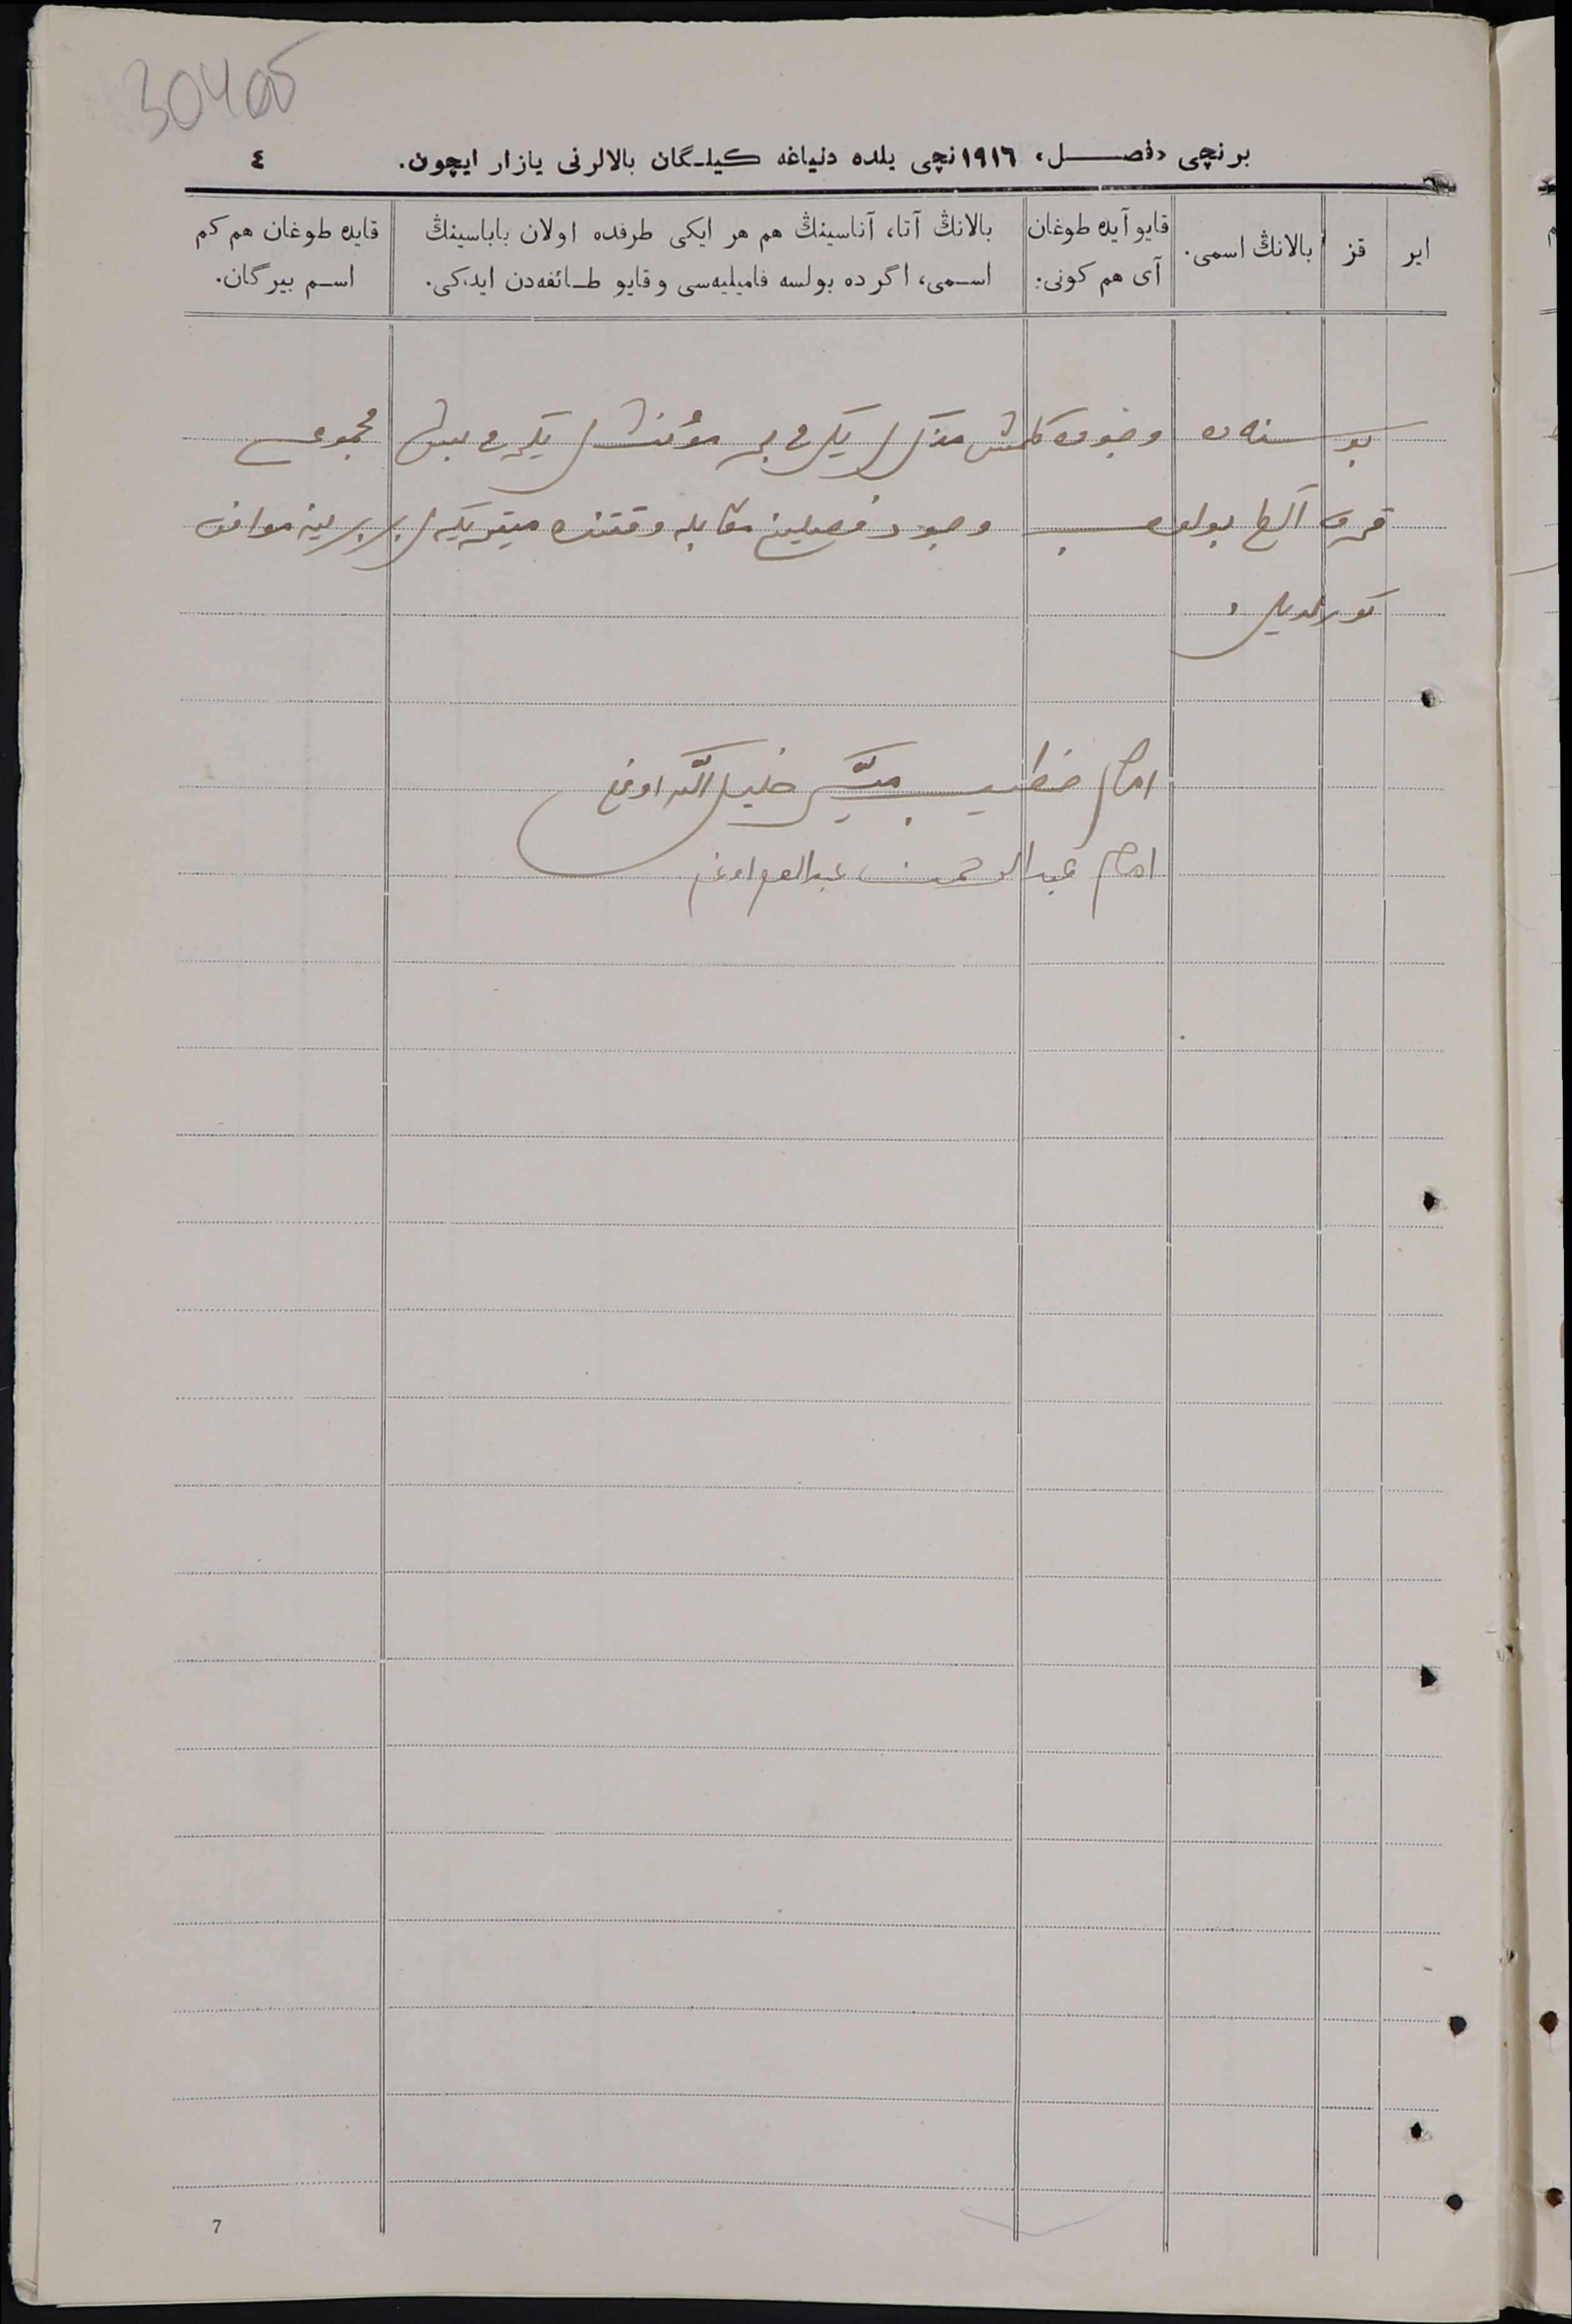 30405
برنچی «فصل» ١٩١٦ نچی یلده دنیاغه کیلـگان بالالرنی یازار ایچون. ٤
ایر
قز
بالانڭ اسمی.
قایو آیده طوغان
آی هم کونی:
بالانڭ آتا، آناسینڭ هم هر ایکی طرفده اولان باباسینڭ
اسـمی، اگرده بولسه فامیلیه‌سی و قایو طـائفه‌دن ایدکی.
قایده طوغان هم کم
اسـم بیرگان.
بو سنه ده وجوده کلمش مذکر یکرمی بر مؤنث یکرمی بیش مجموعی
قرق آلطی بولوب وجود فصلین مقابله وقتنده بربرینه موافق
کورلدیلر
امام خطیب خلیل الله اوغلی
امام عبدالرحمن اوغلی
7